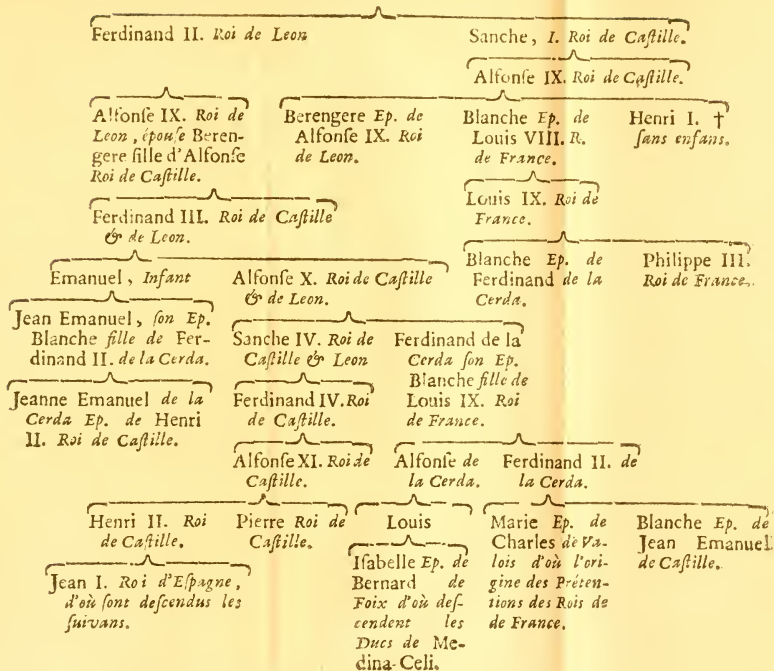 Ferdinand II. Roi de Leon
Sanche, I. Roi de Caſtille.
Alfonſe IX. Roi de Caſtille.
Alfonſe IX. Roi de
Leon, épouſe Beren-
gere fille d'Alfonſe
Roi de Caſtille.
Berengere Ep. de
Alfonſe IX. Roi
de Leon.
Blanche Ep. de
Louis VIII. R.
de France.
Henri I. †
ſans enfans.
Ferdinand III. Roi de Caſtille
& de Leon.
Louis IX. Roi de
France.
Emanuel, Infant
Alfonſe X. Roi de Caſtille
& de Leon.
Blanche Ep. de
Ferdinand de la
Cerda.
Philippe III.
Roi de France.
Jean Emanuel, ſon Ep.
Blanche fille de Fer-
dinand II. de la Cerda.
Sanche IV. Roi de
Caſtille & Leon
Ferdinand de la
Cerda ſon Ep.
Blanche fille de
Louis IX. Roi
de France.
Jeanne Emanuel de la
Cerda Ep. de Henri
II. Roi de Caſtille.
Ferdinand IV. Roi
de Caſtille.
Alfonſe XI. Roi de
Caſtille.
Alfonſe de
la Cerda.
Ferdinand II. de
la Cerda.
Henri II. Roi
de Caſtille.
Pierre Roi de
Caſtille.
Louis
Marie Ep. de
Charles de Va-
lois d'où l'ori-
gine des Préten-
tions des Rois de
de France.
Blanche Ep. de
Jean Emanuel
de Caſtille.
Jean I. Roi d'Eſpagne,
d'où ſont deſcendus les
ſuivans.
Iſabelle Ep. de
Bernard de
Foix d'où deſ-
cendent les
Ducs de Me-
dina-Celi.